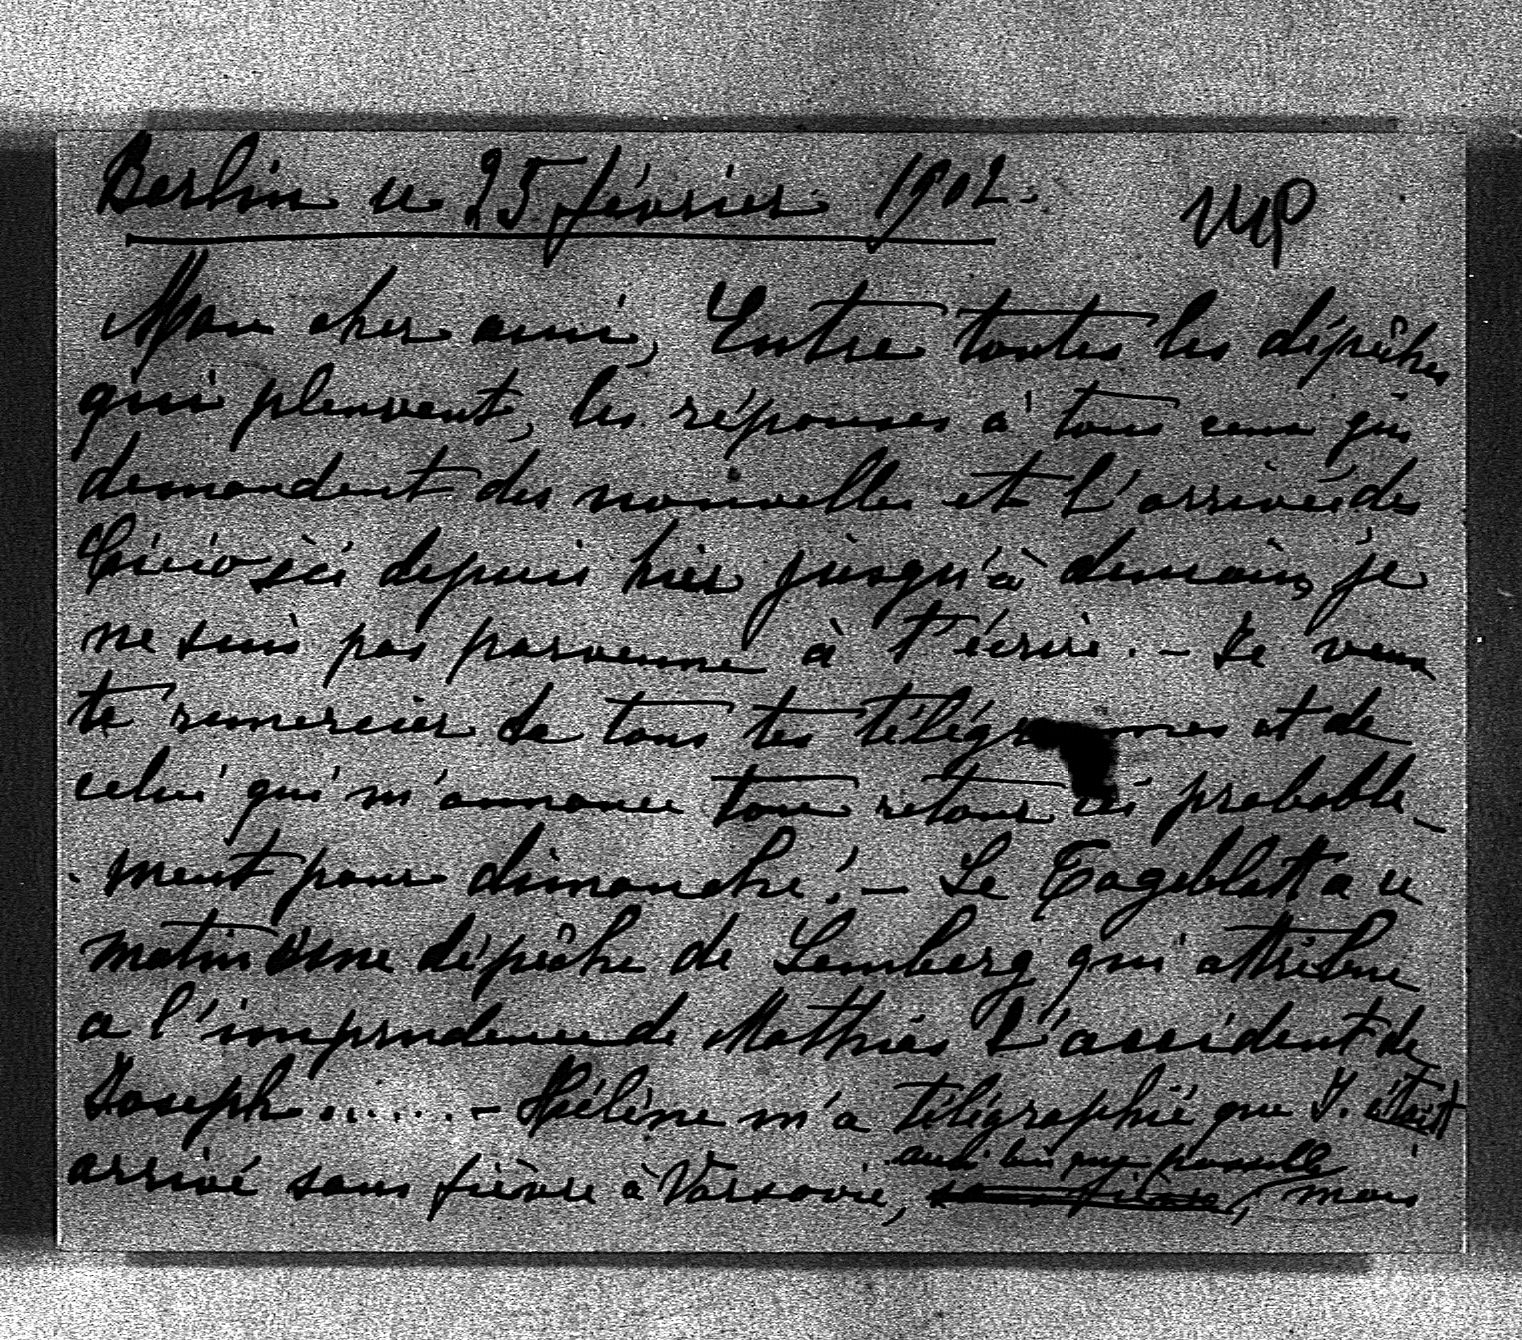 Berlin ce 25 février 1902.
Mon cher ami, Entre toutes les dépêches
qui pleuvent, les réponses à tous ceux qui
demandent des nouvelles et l'arrivée des
depuis hier jusqu'à demain, je
ne suis pas parvenue à t'écrire. - Je veux
te remercier de tous tes télégrammes et de
celui qui m'annonce ton retour ici probable-
-ment pour dimanche! - Le Tageblatt a ce
matin une dépêche de Lemberg qui attribue
a l'imprudence de Mathias l'accident de
Joseph ...... - Hélène m'a télégraphié que J. était
aussi bien que possible
arrivé sans fièvre à Varsovie, sans fièvre, mais